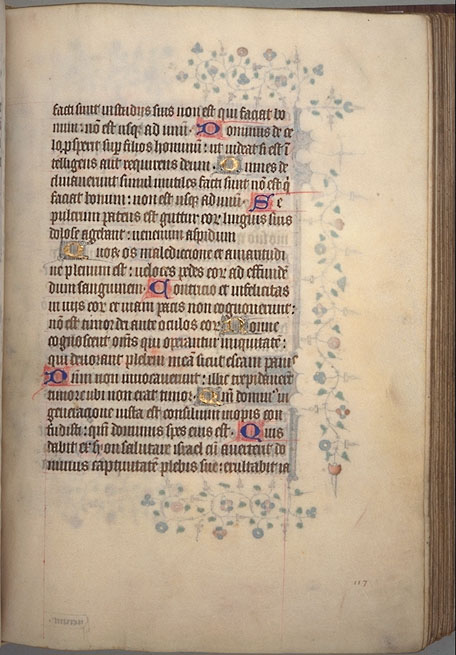 facti sunt in studijs suis non est qui faciat bo
num: nō est usq; ad unū. Dominus de ce
lo prspexit sup filios hominū: ut videat si est ī
telligens aut requirens deum. Omnes de
clinauerunt simul inutiles facti sunt nō est q̇
faciat bonum: non est usq; ad unū. Se
pulcrum patens est guttur eor linguis suis
dolose agebant: uenenum aspidum
Quor os maledictione et amaritudi
ne plenum est: ueloces pedes eor ad effundē
dum sanguinem. Contricio et infelicitas
in uiis eor et uiam pacis non cognouerunt:
nō est timor dei ante oculos eor. Nonne
cognoscent om̄s qui operantur iniquitatē:
qui deuorant plebem meā sicut escam panis
Dnm non inuocauerunt: illic trepidauerūt
timore ubi non erat timor. Qm̄ dominus in
generacione iusta est consilium inopis con
fudisti: qm̄ dominus spes eius est. Quis
dabit ex syon salutare israel cū auerterit do
minus captiuitatē plebis sue: exultabit ia
117